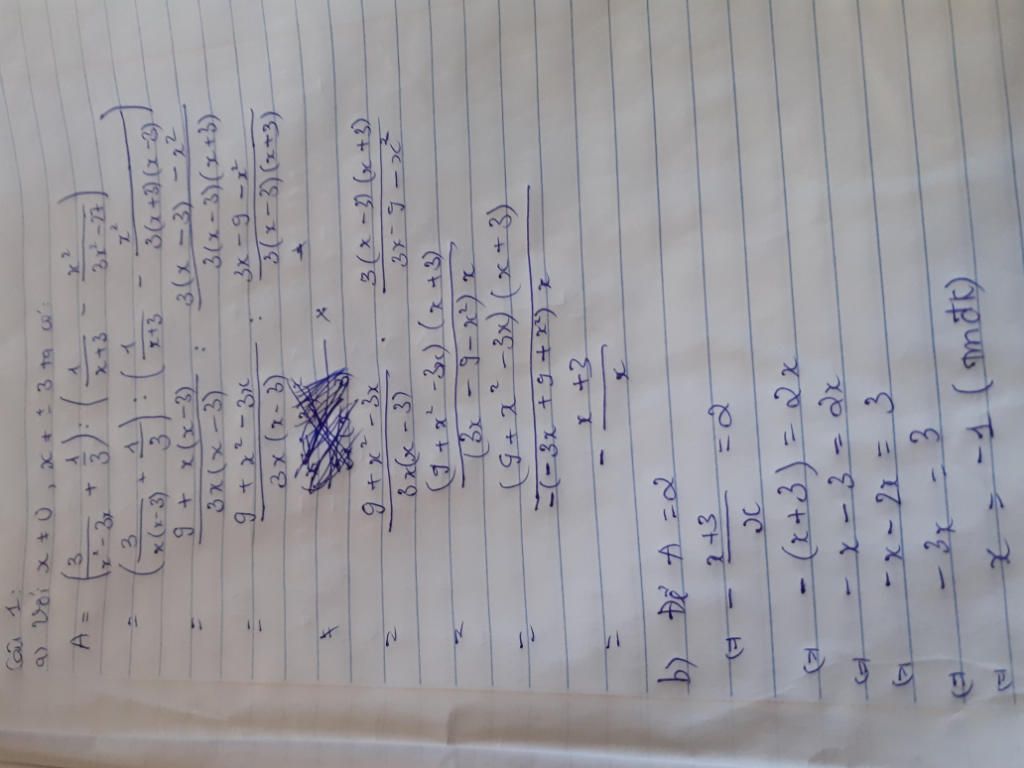 Câu 1:
a) Với x ≠ 0, x ≠ ± 3 ta có:
A = (3/(x² - 3x) + 1/3) : (1/(x+3) - x²/(3x² - 27))
= (3/(x(x-3)) + 1/3) : (1/(x+3) - x²/(3(x+3)(x-3)))
= (9 + x(x-3))/(3x(x-3)) : (3(x-3) - x²)/(3(x-3)(x+3))
= (9 + x² - 3x)/(3x(x-3)) : (3x - 9 - x²)/(3(x-3)(x+3))
= (9 + x² - 3x)/(3x(x-3)) . (3(x-3)(x+3))/(3x - 9 - x²)
= ((9 + x² - 3x)(x+3))/((3x - 9 - x²)x)
= ((9 + x² - 3x)(x+3))/(-(-3x + 9 + x²)x)
= - (x+3)/x
b) Để A = 2
(=) - (x+3)/x = 2
(=) - (x+3) = 2x
(=) - x - 3 = 2x
(=) - x - 2x = 3
(=) - 3x = 3
(=) x = -1 (tmđk)